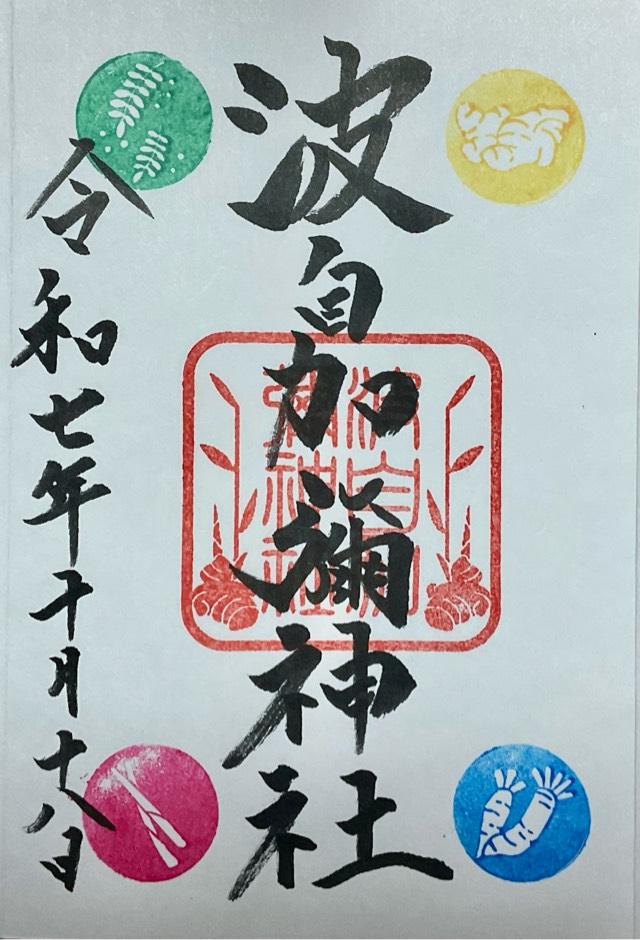 波自加彌神社
波自加
彌神社
令和七年十月十八日